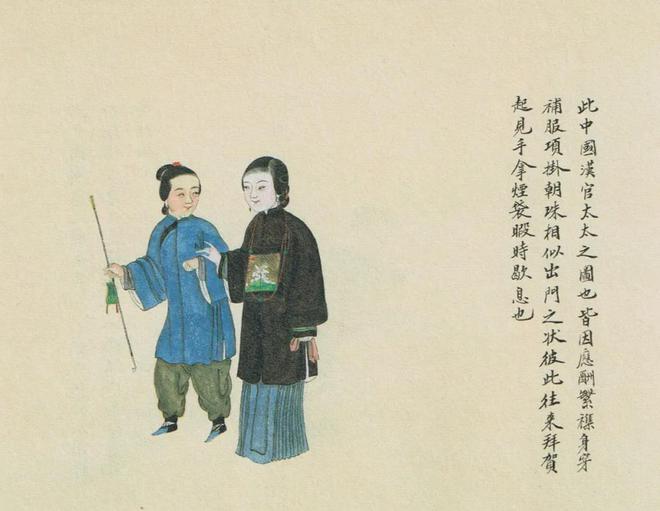 此中國漢官太太之圖也皆因應酬繁襍身穿
補服項掛朝珠相似出門之狀彼此往來拜賀
起見手拿煙袋暇時歇息也